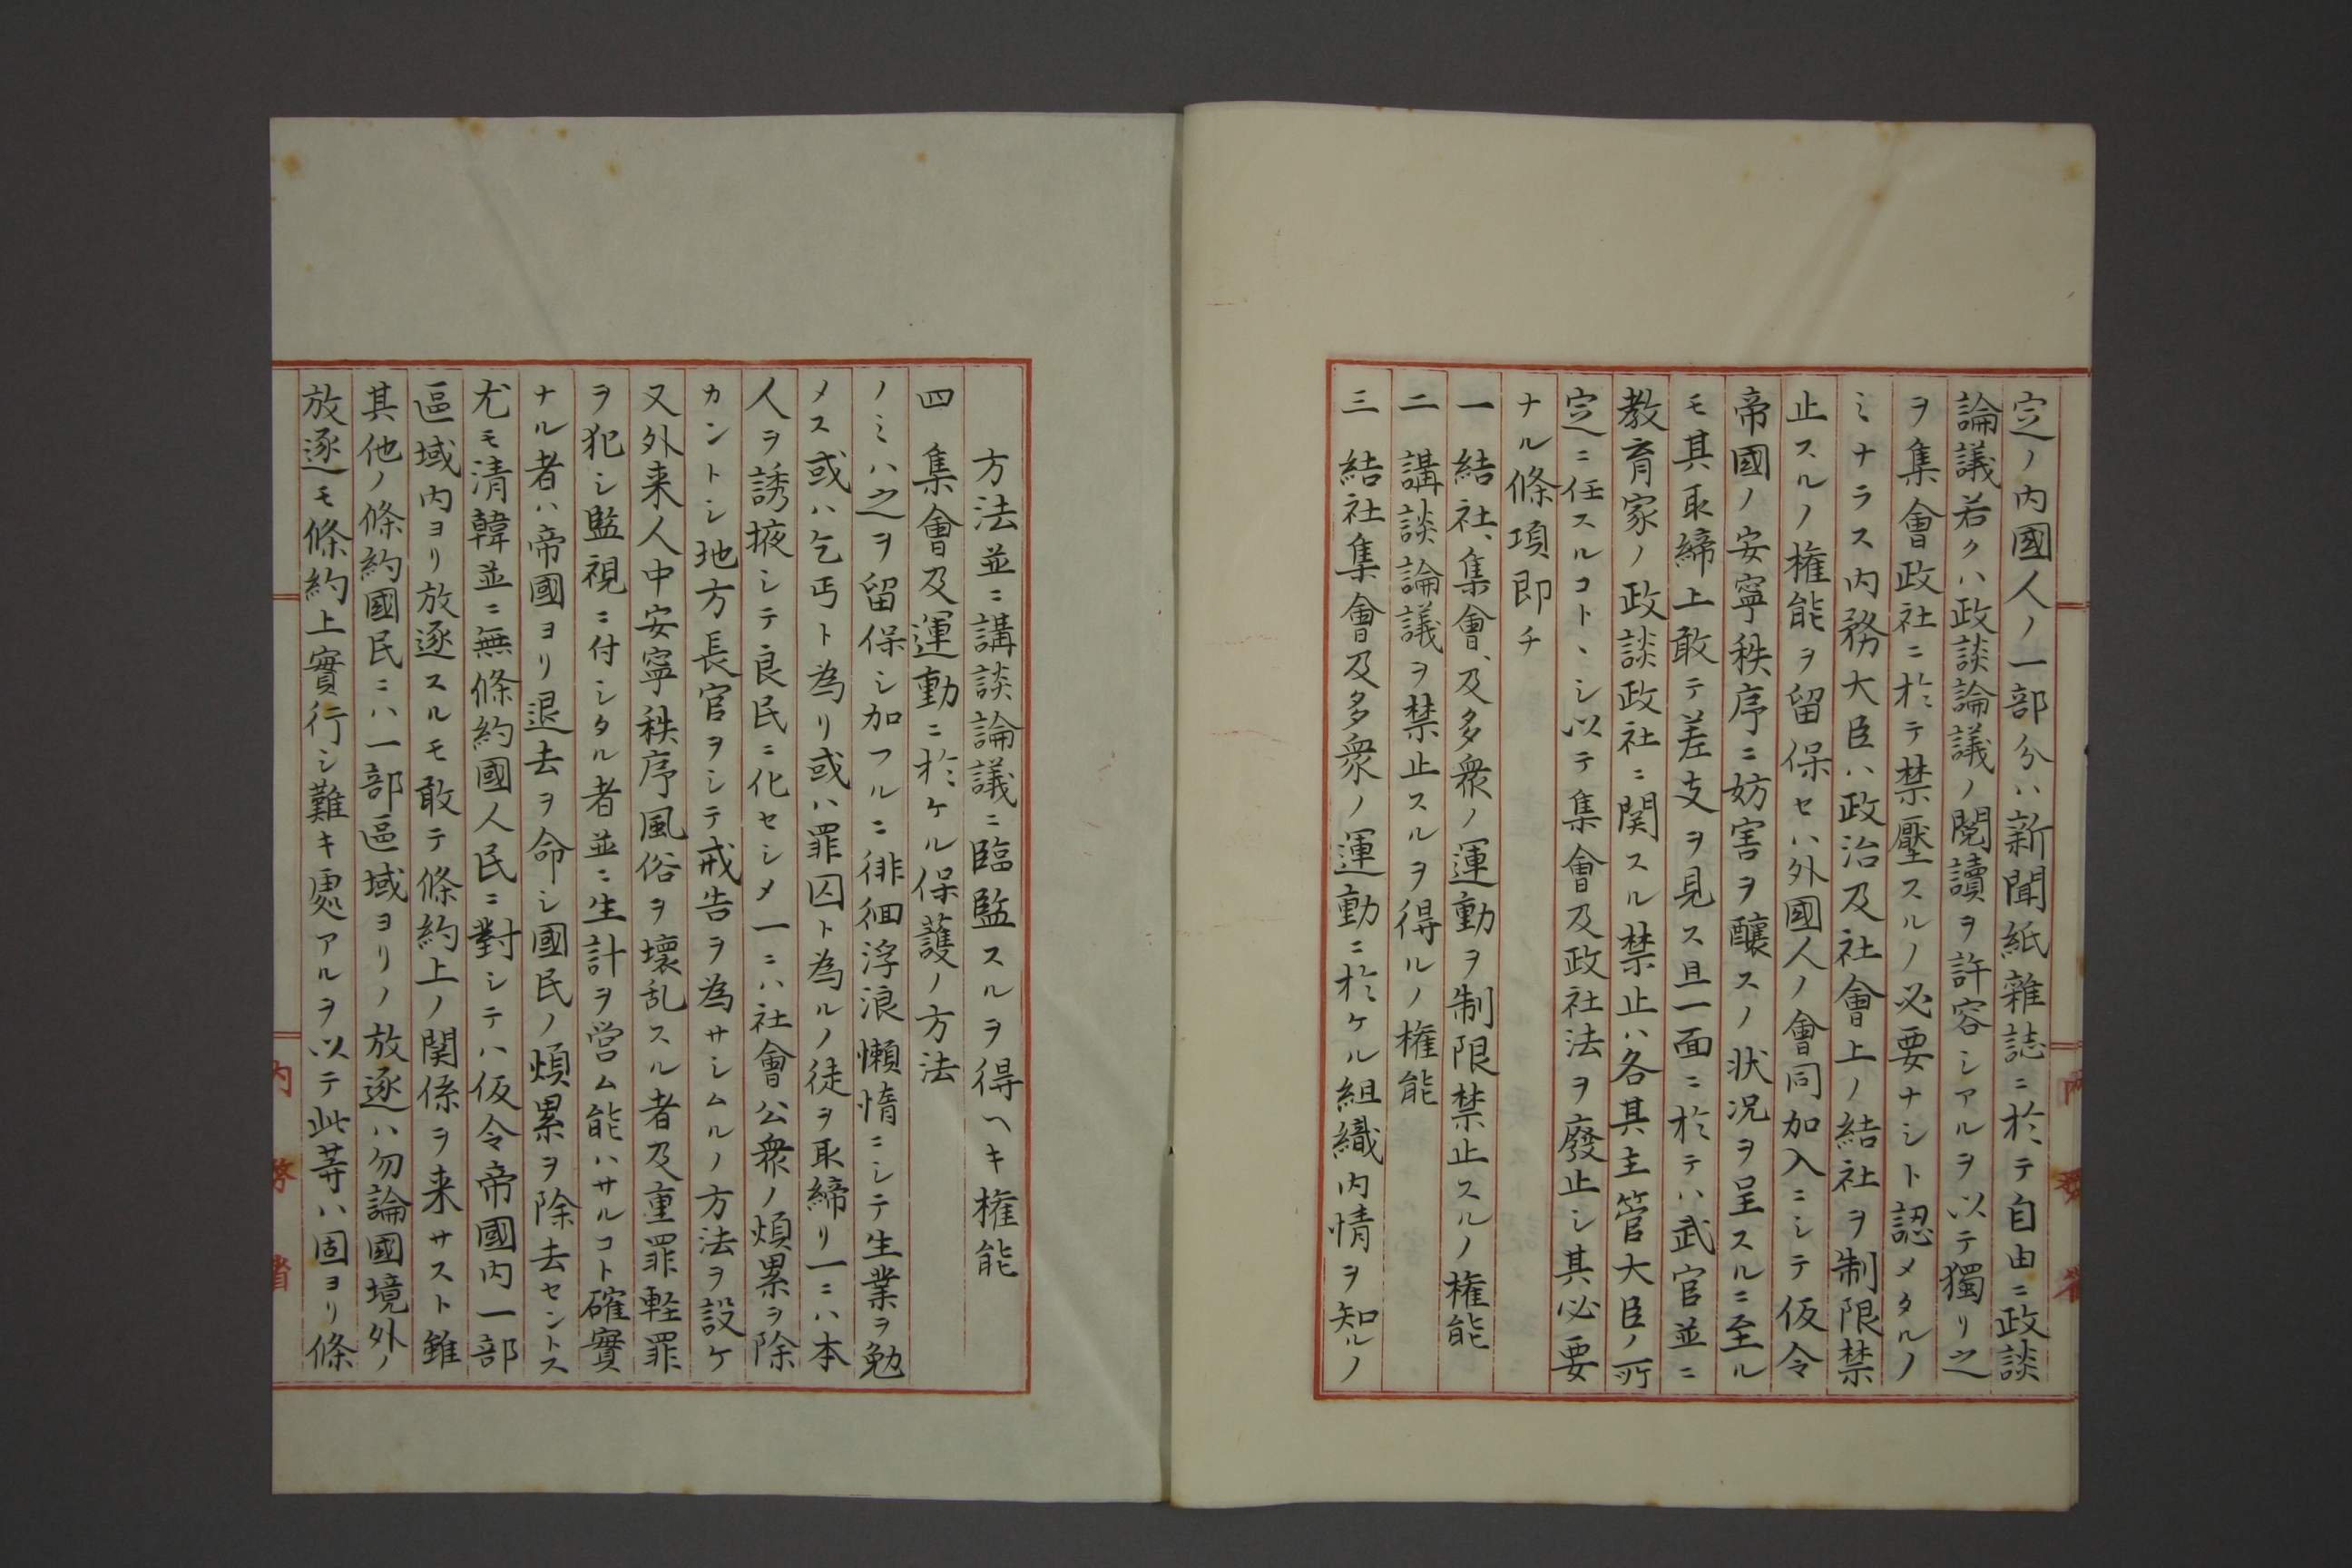 定ノ内國人ノ一部分ハ新聞紙雜誌ニ於テ自由ニ政談
論議若クハ政談論議ノ閲讀ヲ許容シアルヲ以テ獨リ之
ヲ集會政社ニ於テ禁壓スルノ必要ナシト認メタルノ
ミナラス内務大臣ハ政治及社會上ノ結社ヲ制限禁
止スルノ権能ヲ留保セハ外國人ノ會同加入ニシテ仮令
帝國ノ安寧秩序ニ妨害ヲ釀スノ状况ヲ呈スルニ至ル
モ其取締上敢テ差支ヲ見ス且一面ニ於テハ武官並ニ
教育家ノ政談政社ニ関スル禁止ハ各其主管大臣ノ所
定ニ任スルコトヽシ以テ集會及政社法ヲ廢止シ其必要
ナル條項即チ
一 結社、集會、及多衆ノ運動ヲ制限禁止スルノ権能
二 講談論議ヲ禁止スルヲ得ルノ権能
三 結社集會及多衆ノ運動ニ於ケル組織内情ヲ知ルノ
方法並ニ講談論議ニ臨監スルヲ得ヘキ権能
四 集會及運動ニ於ケル保護ノ方法
ノミハ之ヲ留保シ加フルニ徘徊浮浪懶惰ニシテ生業ヲ勉
メス或ハ乞丐ト為リ或ハ罪囚ト為ルノ徒ヲ取締リ一ニハ本
人ヲ誘掖シテ良民ニ化セシメ一ニハ社會公衆ノ煩累ヲ除
カントシ地方長官ヲシテ戒告ヲ為サシムルノ方法ヲ設ケ
又外来人中安寧秩序風俗ヲ壞乱スル者及重罪軽罪
ヲ犯シ監視ニ付シタル者並ニ生計ヲ営ム能ハサルコト確實
ナル者ハ帝國ヨリ退去ヲ命シ國民ノ煩累ヲ除去セントス
尤モ清韓並ニ無條約國人民ニ對シテハ仮令帝國内一部
區域内ヨリ放逐スルモ敢テ條約上ノ関係ヲ来サスト雖
其他ノ條約國民ニハ一部區域ヨリノ放逐ハ勿論國境外ノ
放逐モ條約上實行シ難キ處アルヲ以テ此等ハ固ヨリ條
内務省